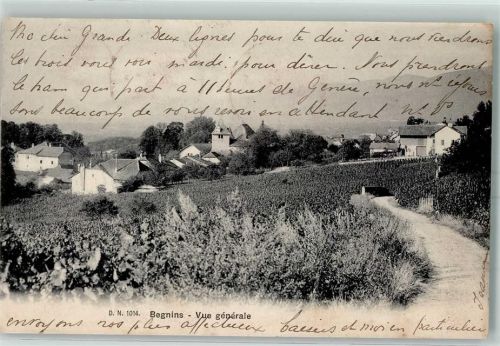 Ma chère Grande. Deux lignes pour te dire que nous viendrons
les trois vous voir mardi pour dîner. Nous prendrons
le bam qui part à 11 heures de Genève, nous nous réjouissons
beaucoup de vous revoir en attendant
D. N. 1014. Begnins - Vue générale
envoyons nos plus affectueux baisers et moi en particulier